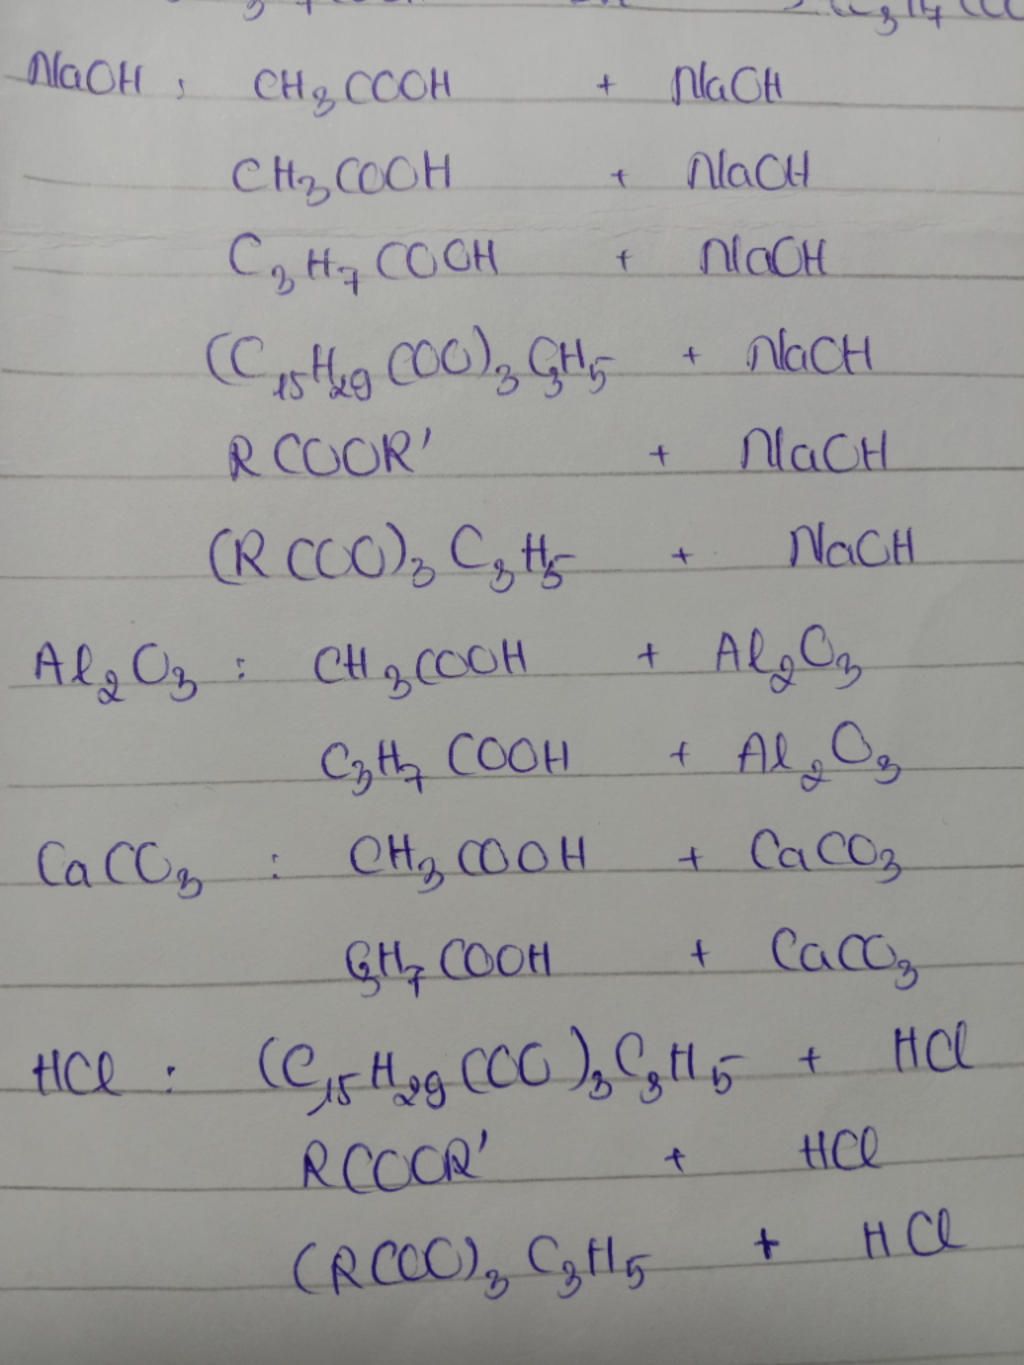 NaOH : CH₃COOH + NaOH
CH₃COOH + NaOH
C₃H₇COOH + NaOH
(C₁₅H₂₉COO)₃C₃H₅ + NaOH
RCOOR' + NaOH
(RCOO)₃C₃H₅ + NaOH
Al₂O₃ : CH₃COOH + Al₂O₃
C₃H₇COOH + Al₂O₃
CaCO₃ : CH₃COOH + CaCO₃
C₃H₇COOH + CaCO₃
HCl : (C₁₅H₂₉COO)₃C₃H₅ + HCl
RCOOR' + HCl
(RCOO)₃C₃H₅ + HCl